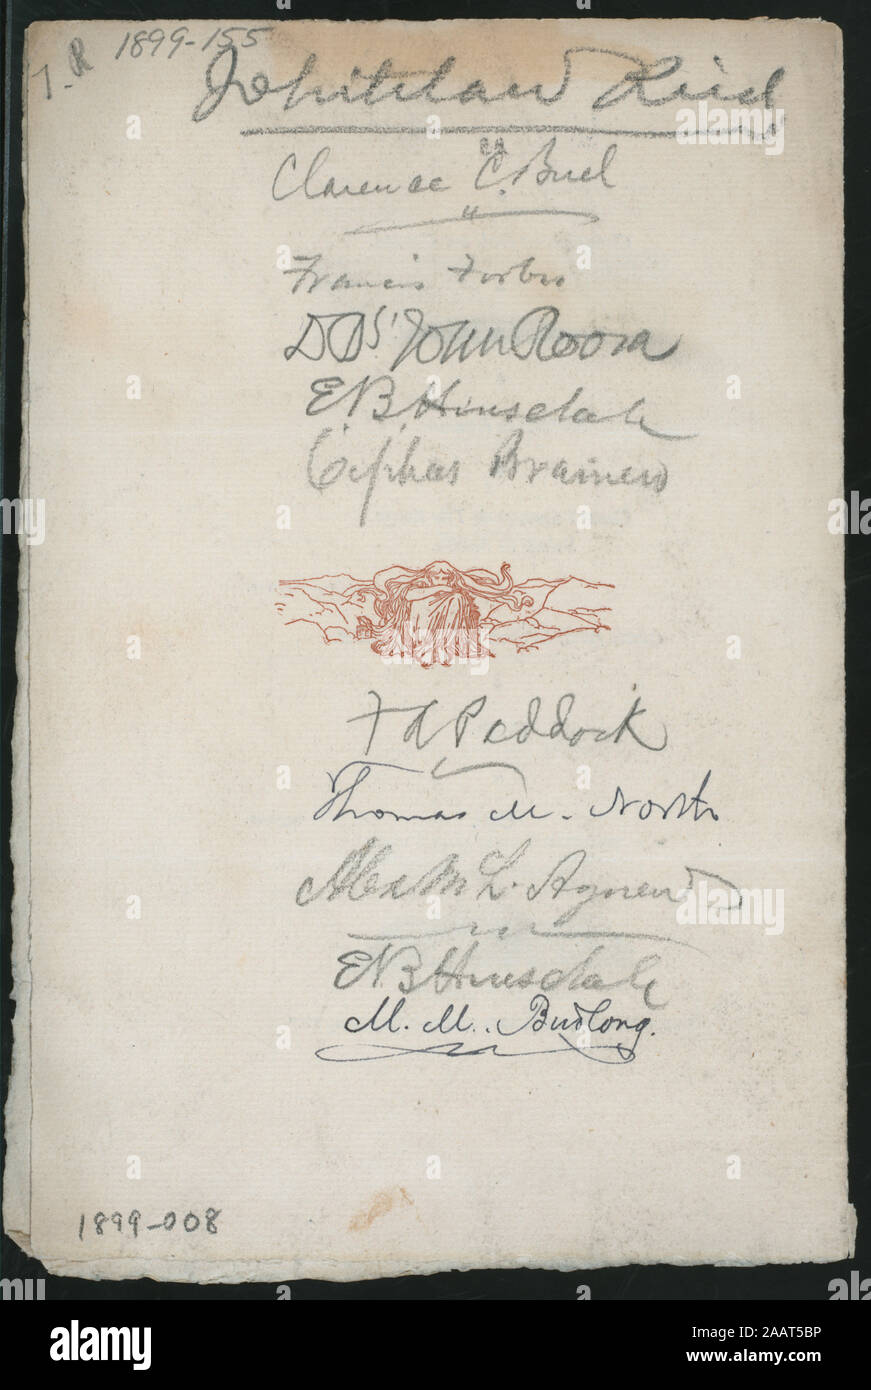 J.R 1899-155
Whitelaw Reid
Clarence C. Buel
Francis Forbes
D B St John Roosa
E B Hinsdale
Cephas Brainerd
F A Paddock
Thomas M. North
Alex M L. Agnew
E B Hinsdale
M. M. Budlong.
1899-008
alamy
Image ID: 2AAT5BP
www.alamy.com